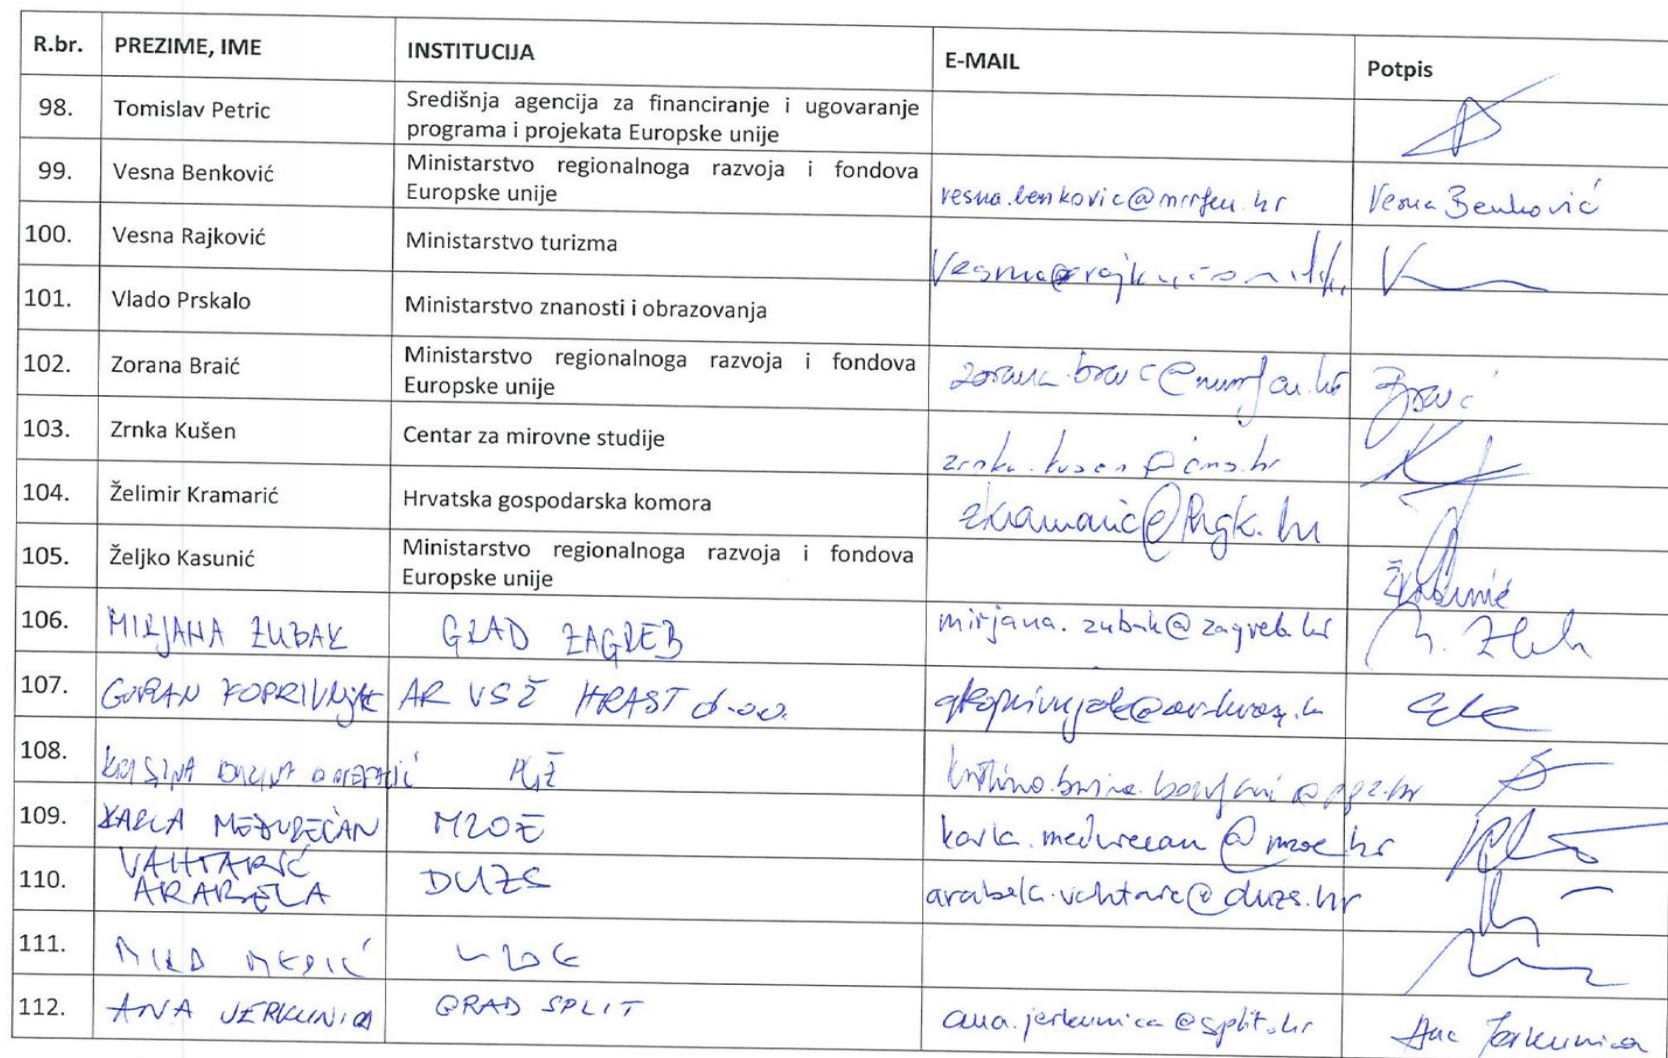 R.br. PREZIME, IME INSTITUCIJA E-MAIL Potpis
98. Tomislav Petric Središnja agencija za financiranje i ugovaranje
programa i projekata Europske unije
99. Vesna Benković Ministarstvo regionalnoga razvoja i fondova
Europske unije vesna.benkovic@mrrfeu.hr Vesna Benković
100. Vesna Rajković Ministarstvo turizma
101. Vlado Prskalo Ministarstvo znanosti i obrazovanja
102. Zorana Braić Ministarstvo regionalnoga razvoja i fondova
Europske unije
103. Zrnka Kušen Centar za mirovne studije zrnka.kusen@cms.hr
104. Želimir Kramarić Hrvatska gospodarska komora zkramaric@hgk.hr
105. Željko Kasunić Ministarstvo regionalnoga razvoja i fondova
Europske unije
106. MIRJANA ZUBAK GRAD ZAGREB mirjana.zubak@zagreb.hr
107. GORAN KOPRIVNJAK AR VSŽ HRAST d.o.o.
108. PGŽ
109. KARLA MEĐUREČAN MZOE karla.medurecan@mzoe.hr
110. VAHTARIĆ
ARABELA DUZS arabela.vahtaric@duzs.hr
111. MEDIĆ
112. ANA JERKUNICA GRAD SPLIT ana.jerkunica@split.hr Ana Jerkunica